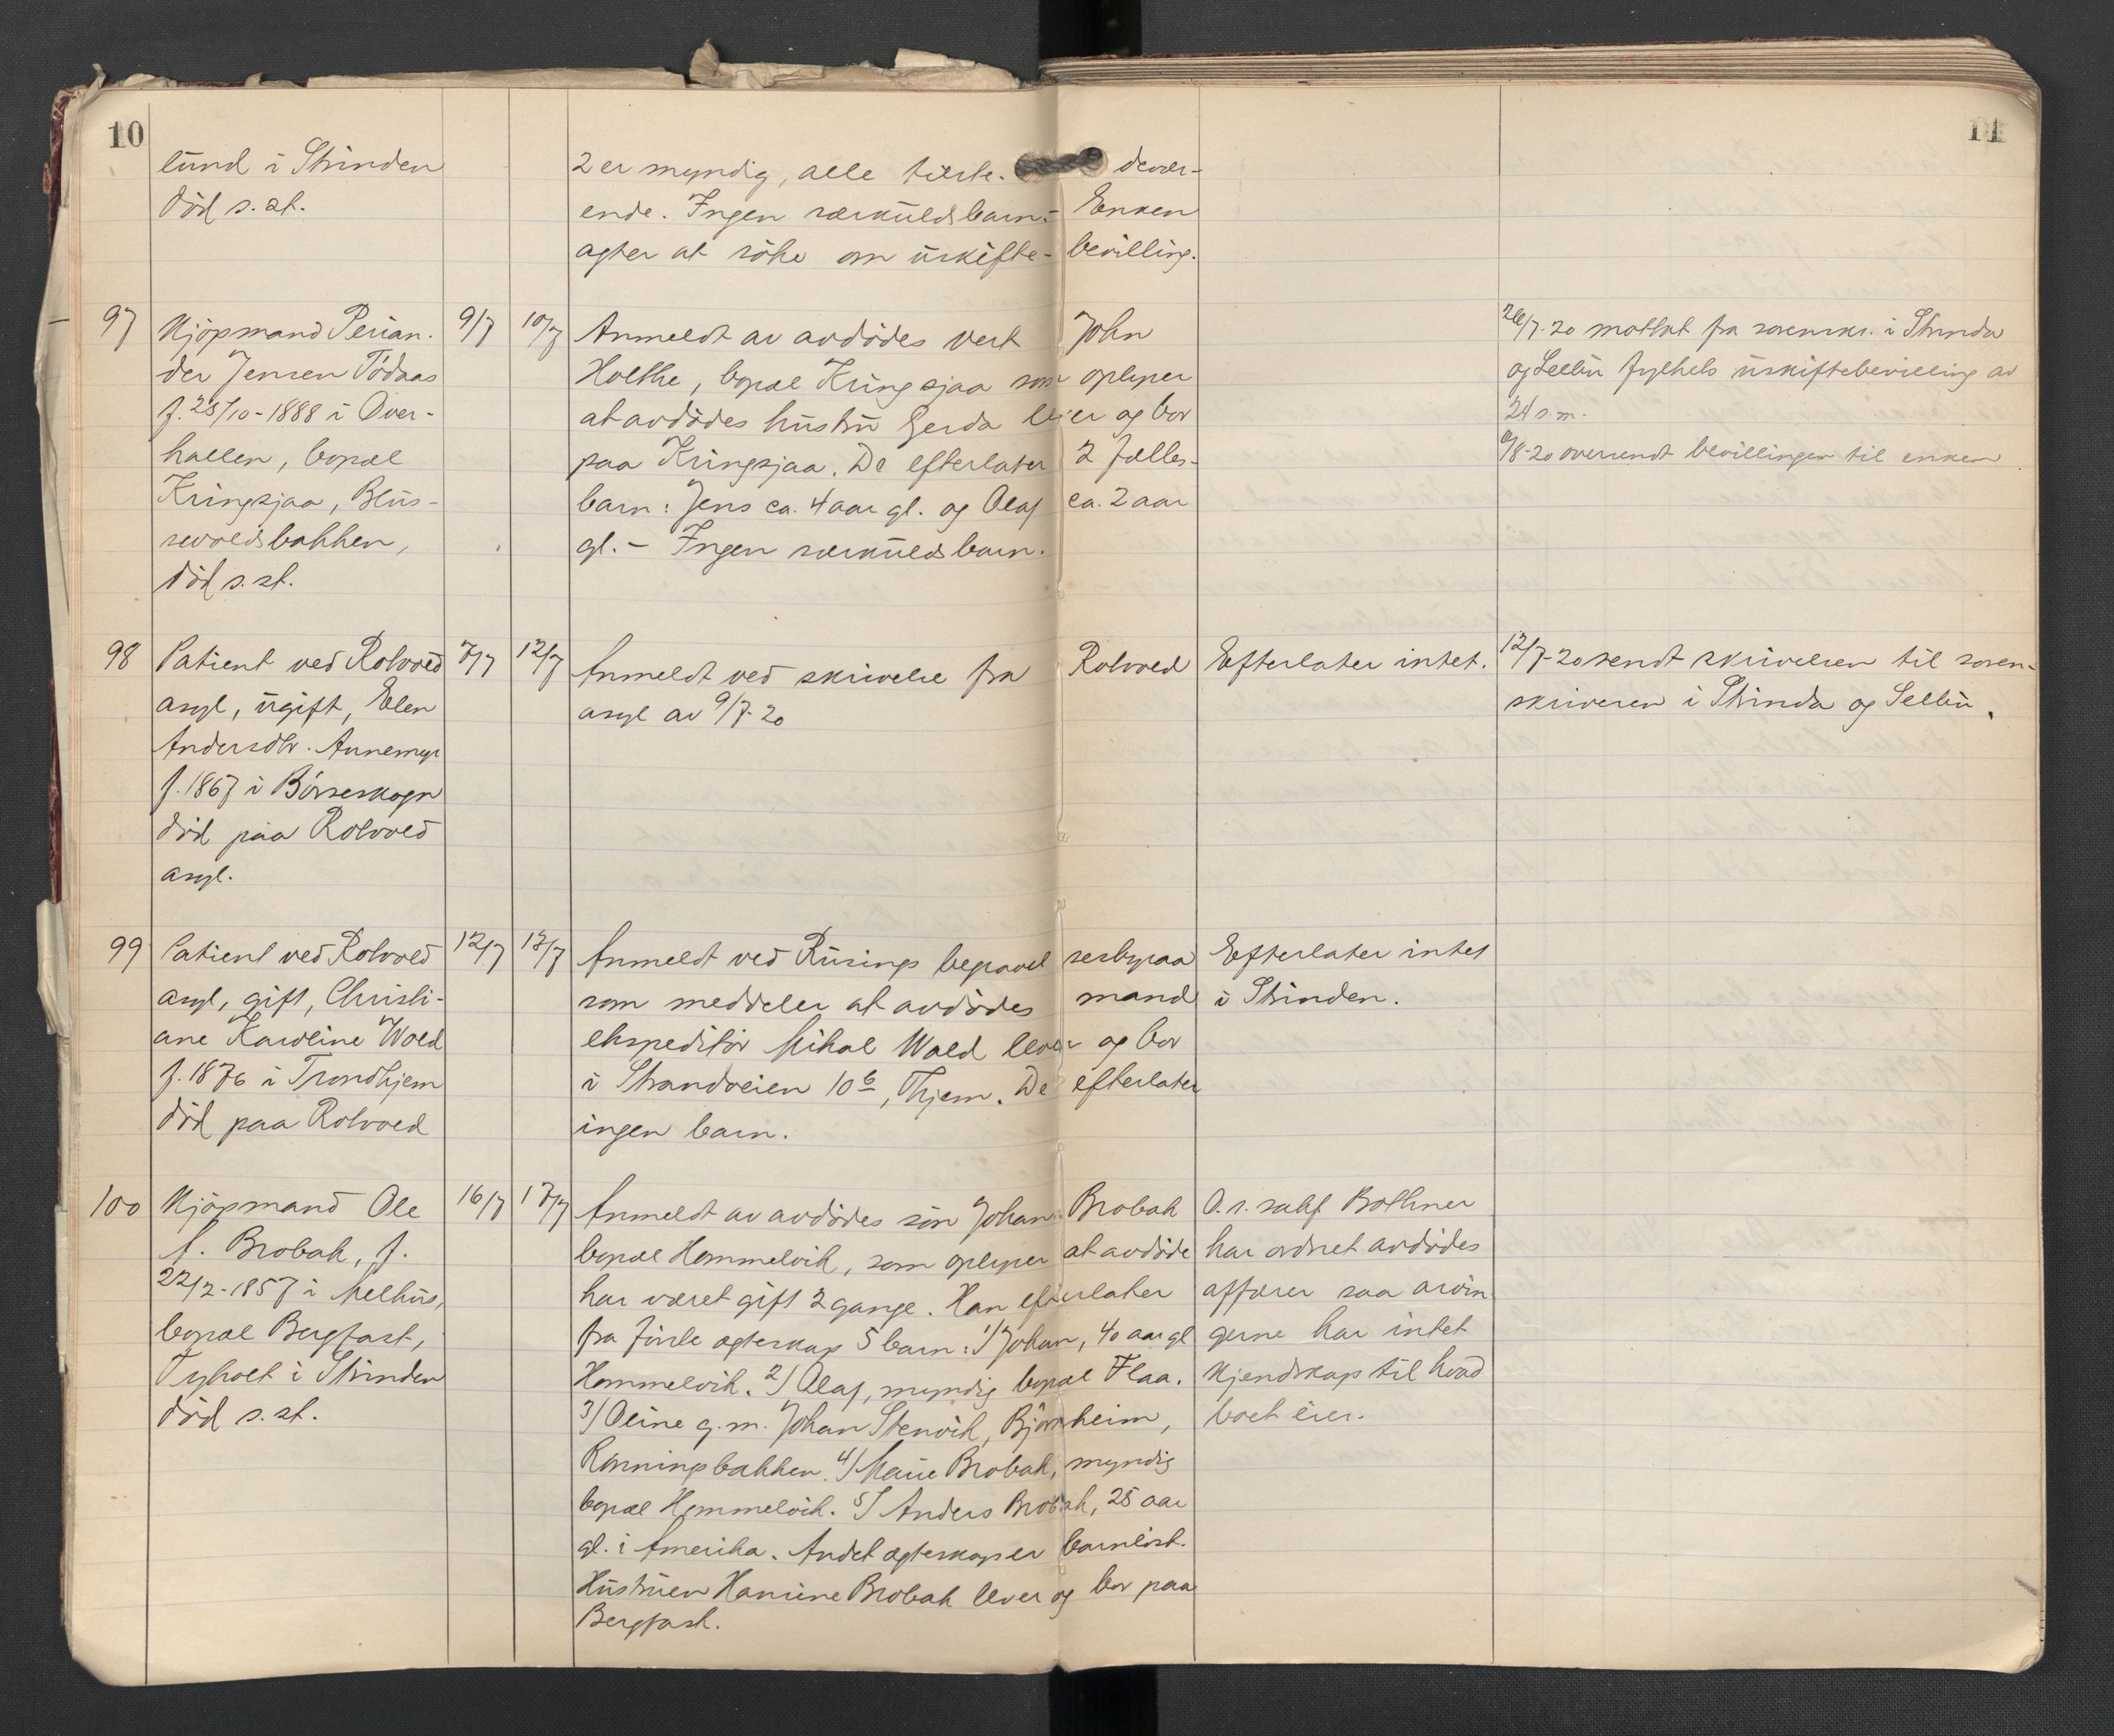 10
11
lund i Strinden
død s. st.
2 er myndig, alle tilste-devær-
ende. Ingen særkuldsbarn. - Enken
agter at søke om uskifte- bevilling.
97
Kjøpmand Perian-
der Jensen Tødaas
f. 25/10-1888 i Over-
hallen, bopæl
Kringsjaa, Blus-
sevoldsbakken,
død s. st.
9/7
10/7
Anmeldt av avdødes vert John
Holthe, bopæl Kringsjaa som oplyser
at avdødes hustru Gerda lever og bor
paa Kringsjaa. De efterlater 2 fælles-
barn: Jens ca. 4 aar gl. og Olaf ca. 2 aar
gl. - Ingen særkuldsbarn.
26/7-20 mottat fra sorenskr. i Strinda
og Selbu fylkets uskiftebevilling av
24 s. m.
6/8-20 oversendt bevillingen til enken
98
Patient ved Rotvold
asyl, ugift, Elen
Andersdtr. Annemyr
f. 1867 i Børseskogn
død paa Rotvold
asyl.
7/7
12/7
Anmeldt ved skrivelse fra Rotvold
asyl av 9/7-20
Efterlater intet.
12/7-20 sendt skrivelsen til soren-
skriveren i Strinda og Selbu.
99
Patient ved Rotvold
asyl, gift, Christi-
ane Karoline Wold
f. 1876 i Trondhjem
død paa Rotvold
12/7
13/7
Anmeldt ved Rusings begravelsesbyraa
som meddeler at avdødes mand
ekspeditør Mikal Wold lever og bor
i Strandveien 10 b, Thjem. De efterlater
ingen barn.
Efterlater intet
i Strinden.
100
Kjøpmand Ole
A. Brobak, f.
22/2-1857 i Melhus,
bopæl Bergfast,
Tyholt i Strinden
død s. st.
16/7
17/7
Anmeldt av avdødes søn Johan Brobak
bopæl Hommelvik, som oplyser at avdøde
har været gift 2 gange. Han efterlater
fra første egteskap 5 barn: 1/ Johan, 40 aar gl
Hommelvik. 2/ Olaf, myndig bopæl Flaa.
3/ Oline g. m. Johan Stenvik, Bjørkheim,
Rønningsbakken. 4/ Marie Brobak, myndig
bopæl Hommelvik. 5/ Anders Brobak, 25 aar
gl. i Amerika. Andet egteskap er barnløst.
Hustruen Hansine Brobak lever og bor paa
Bergfast.
O. r. sakf. Bothner
har ordnet avdødes
affærer saa arvin-
gerne har intet
kjendskap til hvad
boet eier.